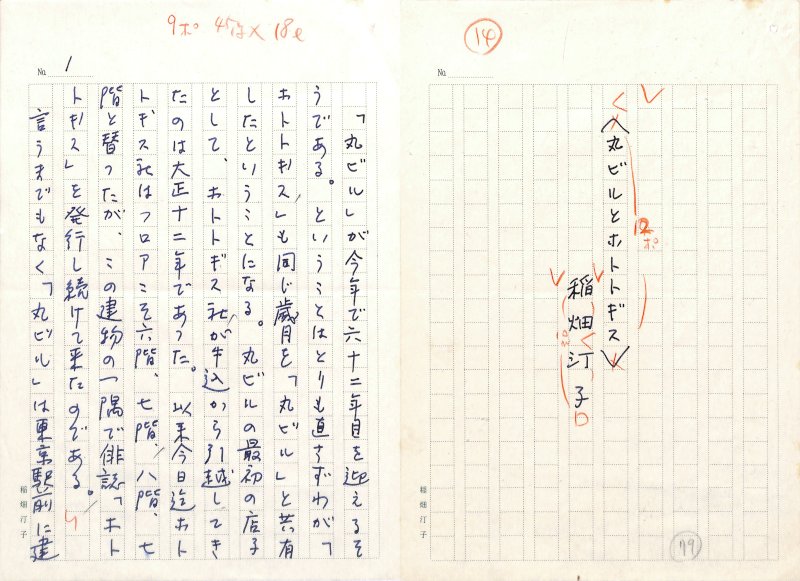 14
〈丸ビルとホトトギス〉
12ポ
稲畑汀子
稲畑汀子
79
9ポ 45字×18ℓ
№ 1
「丸ビル」が今年で六十二年目を迎えるそ
うである。ということはとりも直さずわが「
ホトトギス」も同じ歳月を「丸ビル」と共有
したということになる。丸ビルの最初の店子
として、ホトトギス社が牛込から引越してき
たのは大正十二年であった。以来今日迄ホト
トギス社はフロアこそ六階、七階、八階、七
階と替ったが、この建物の一隅で俳誌「ホト
トギス」を発行し続けて来たのである。
言うまでもなく「丸ビル」は東京駅前に建
稲畑汀子
№